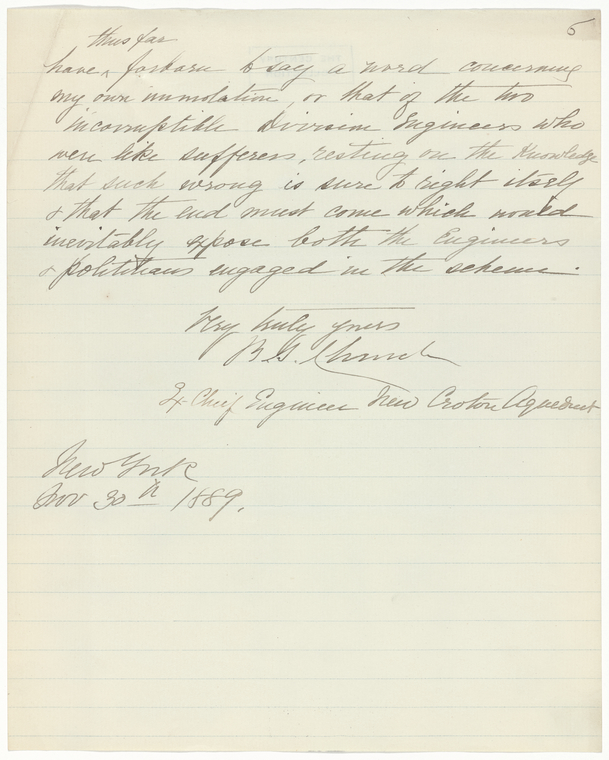 5
thus far
have ^ forborn to say a word concerning
my own immolation, or that of the two
incorruptible division Engineers who
were like sufferers, resting on the Knowledge
that such wrong is sure to right itself
& that the end must come which would
inevitably expose both the Engineers
& politicians engaged in the scheme.
Very truly yours
B. S. Church
Ex-Chief Engineer New Croton Aqueduct
New York
Nov 30th 1889.